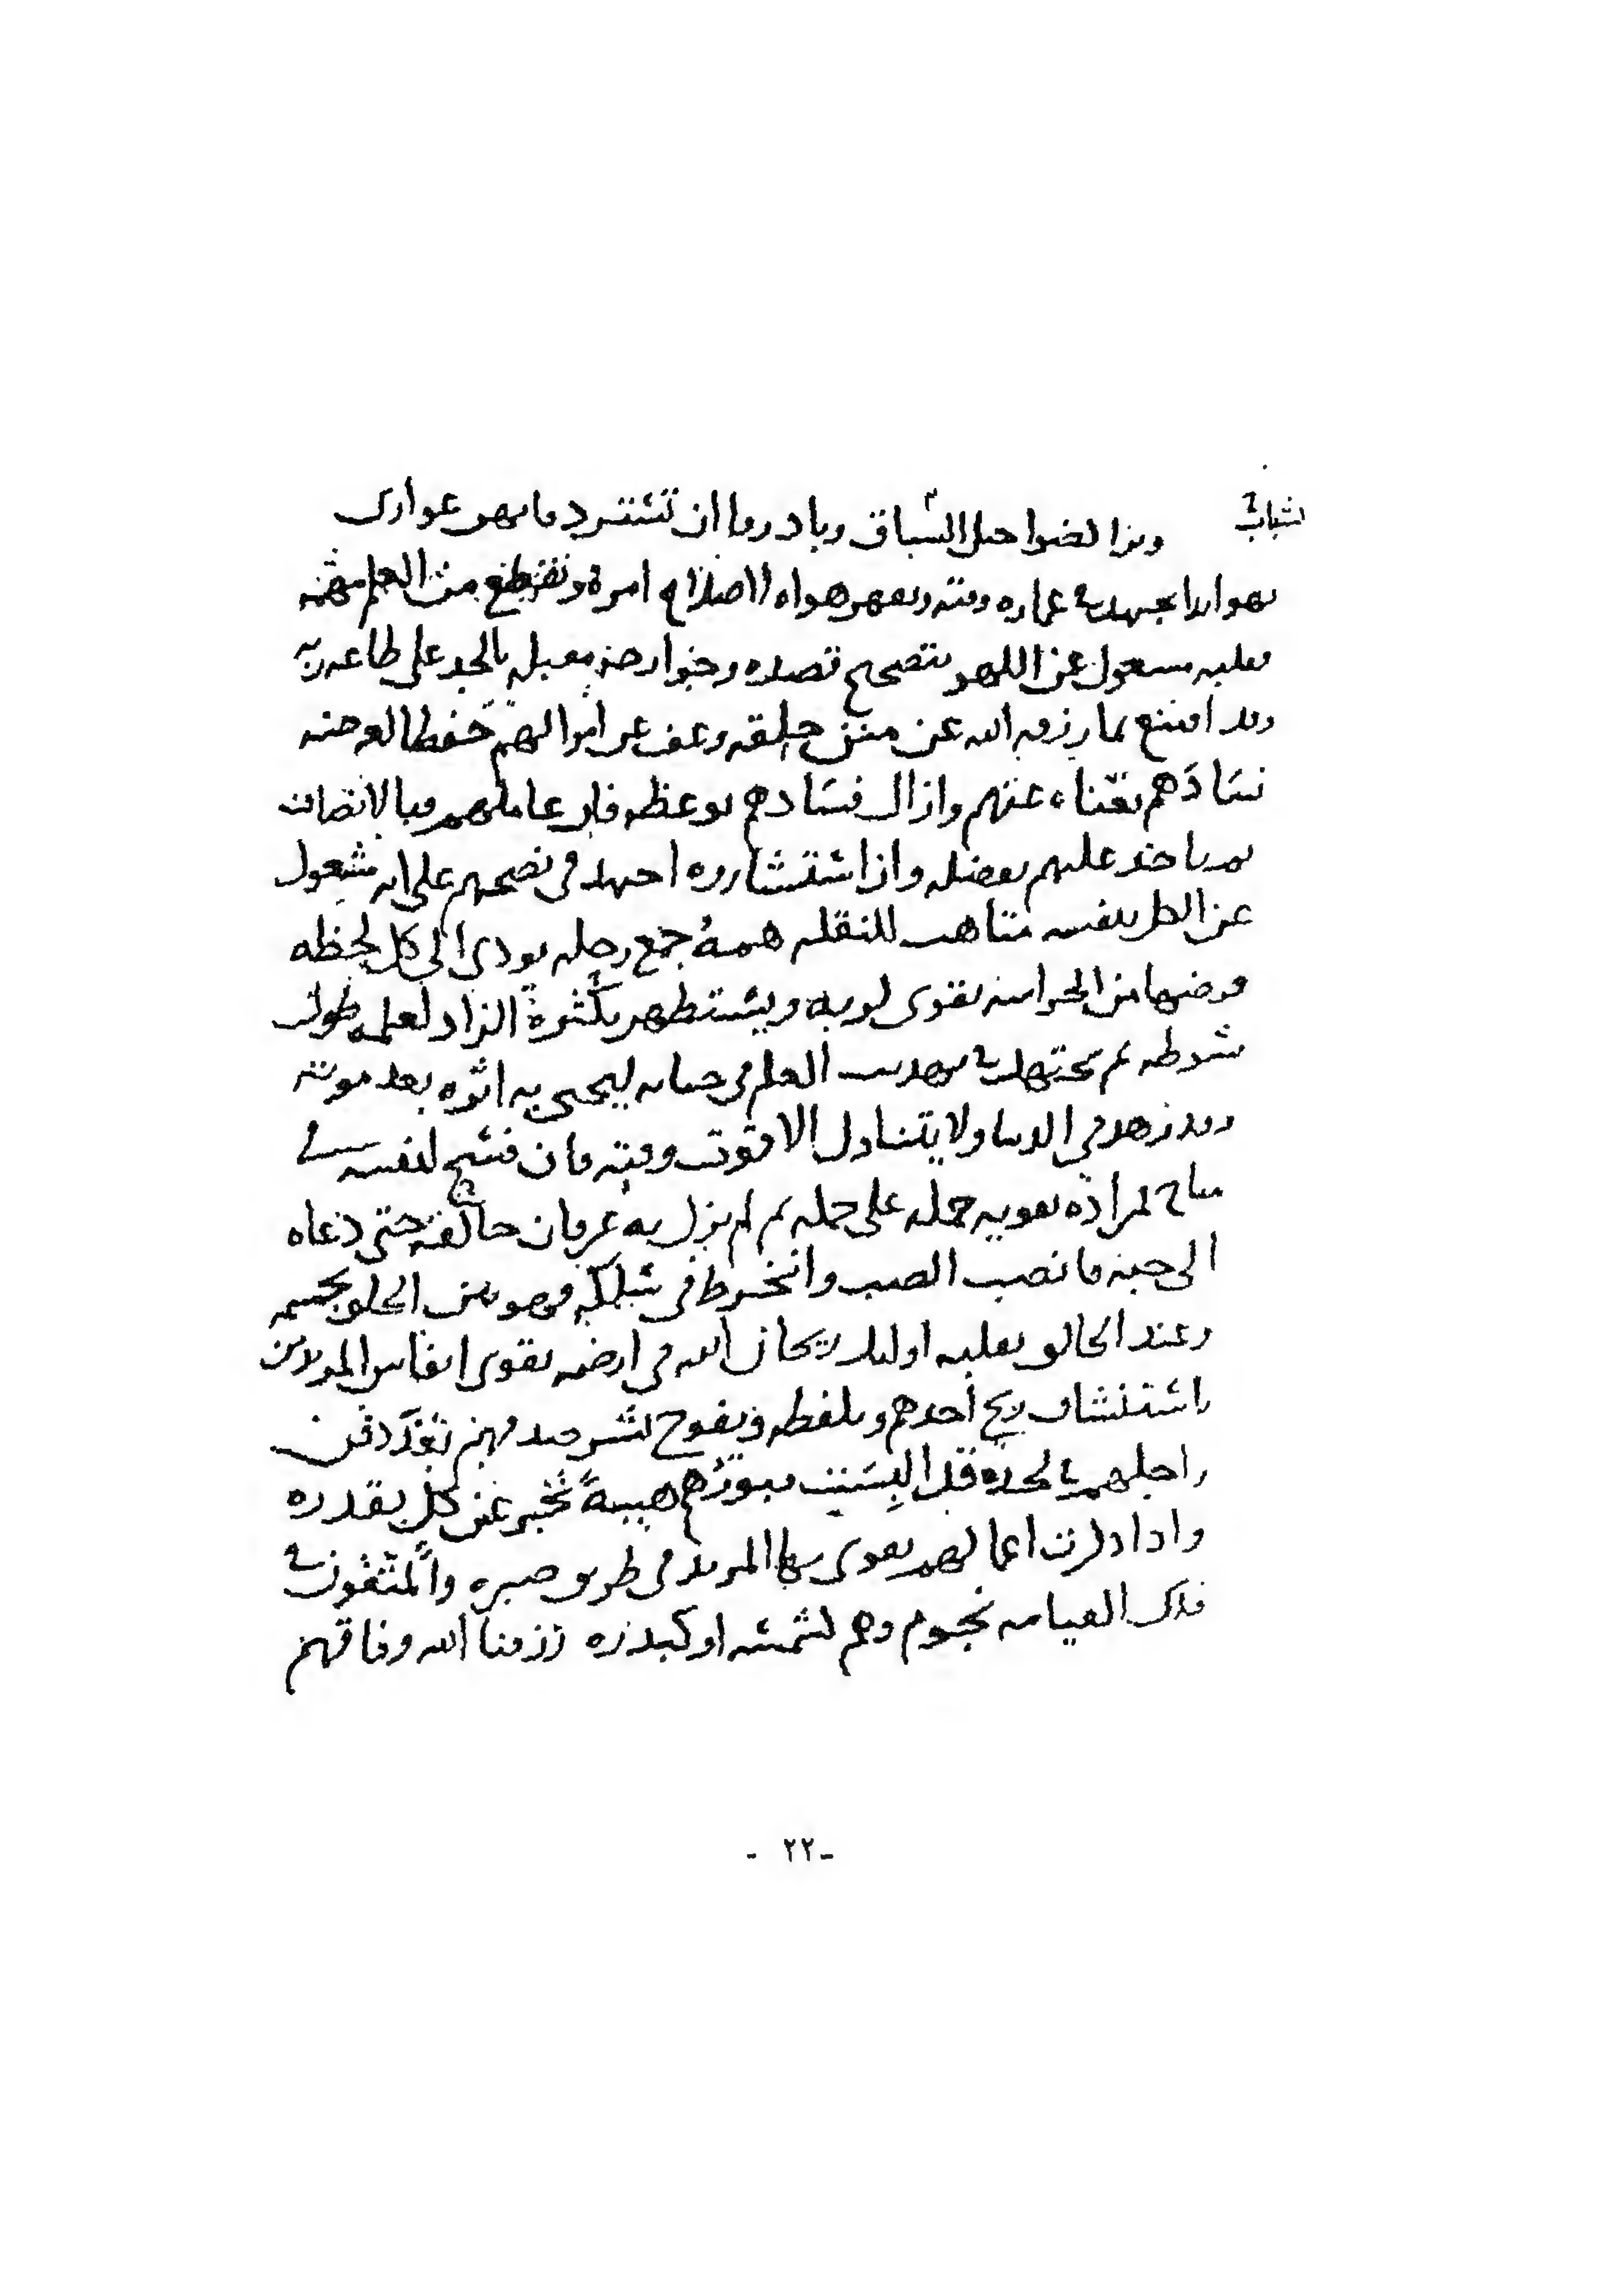 الشباب وبذا لضوا خيل السباق وبادروا ان تسترد ما بهم عواري
فهو ابدا يجتهد في عماره وقته ويقهر هواه لاصلاح امره ويقتطع من العلم مهمه
فقلبه مشغول عن اللهو بتصحيح قصده وجوارحه مقبله بالجد على طاعه ربه
وقد اقتنع بما رزقه الله عن منن خلقه وعف عن اموالهم حفظا لعرضه
نسادهم بغناه عنهم وازال فسادهم بوعظه فان عاملهم فبالانصاف
لم ياخذ عليهم بفضله واذا استشاروه اجتهد في نصحهم على انه مشغول
عن الكل بنفسه متاهب للنقله همه جمع رحله يودي الى كل لحظه
فرضها من الحراسه بتقوى لربه ويستظهر بكثرة الزاد لعلمه بطول
شوطه ثم يجتهد في تهذيب العلم في حياته ليحيى به اثره بعد موته
وقد زهد في الدنيا ولا يتناول الا قوت وقته فان فسح لنفسه في
مباح فمراده تقويه حمله على حمله ثم لم يزل به عرفان خالقه حتى دعاه
الى حبه فانصب الصب وانخرط في سلكه فهو بين الخلق بجسمه
وعند الخالق بقلبه اوليك ريحان الله في ارضه تقوى انفاس المريدين
باستنشاق ريح احدهم وبلفظه ويفوح نشر صد منهم تفرد فن
راحلهم في لحده قد البست قبورهم هيبة تخبر عن كل بقدره
واذا ذكرت اعمالهم يقوى بها المريد في طريق صبره والمتقون في
فلك القيامه نجوم وهم كشمسه او كبدره رزقنا الله وفاقهم
- ٢٢ -